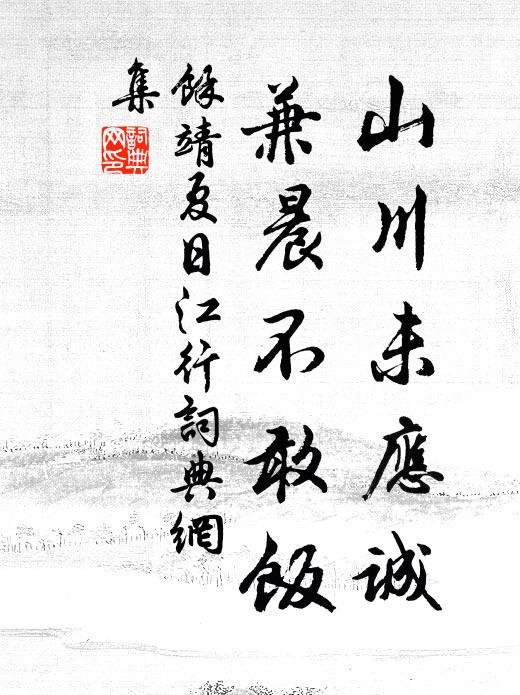 山川未應誠
兼晨不敢飯
餘靖夏日江行詞典網
集
詞典
网印